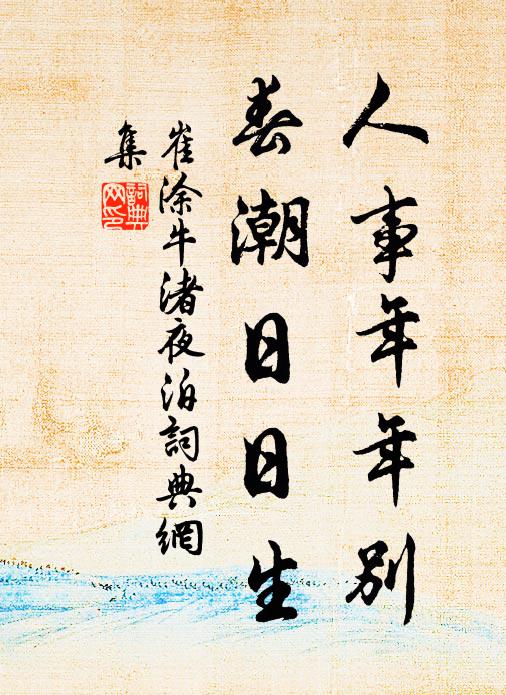 人事年年別
春潮日日生
崔涂牛渚夜泊詞典網
集
詞典
网印